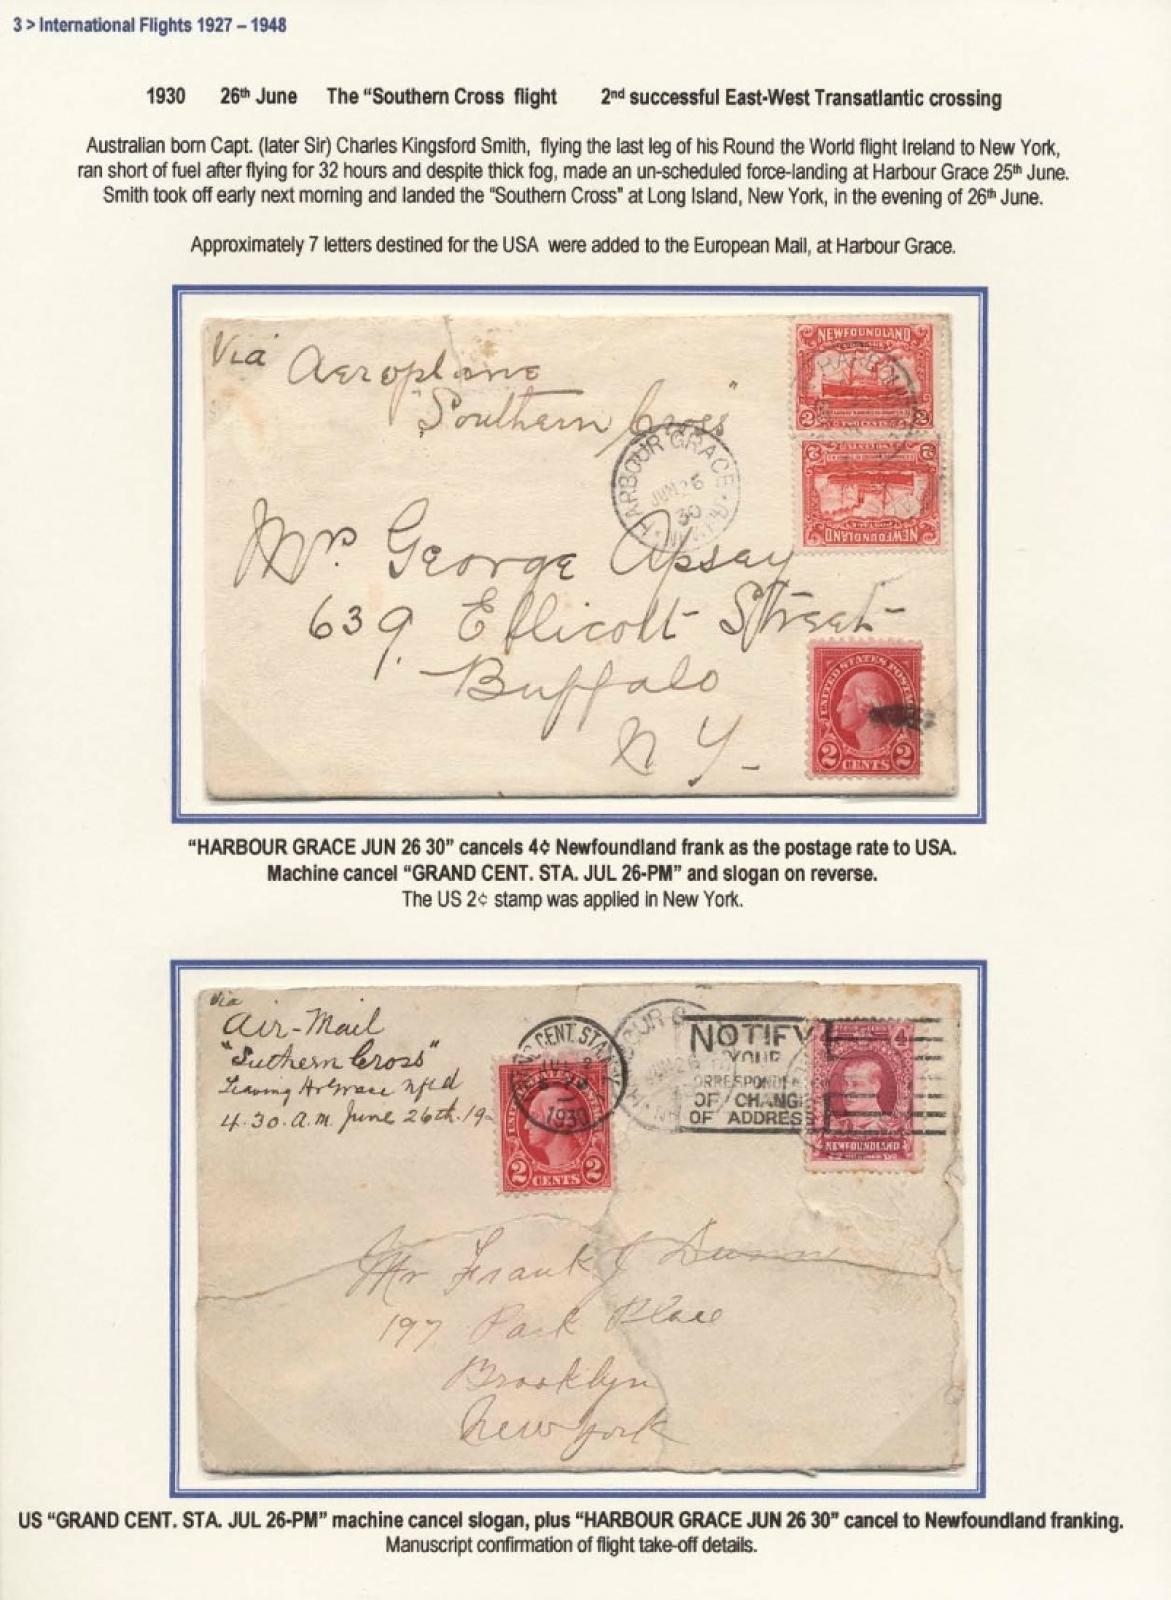 3 > International Flights 1927 – 1948
1930 26th June The “Southern Cross flight 2nd successful East-West Transatlantic crossing
Australian born Capt. (later Sir) Charles Kingsford Smith, flying the last leg of his Round the World flight Ireland to New York,
ran short of fuel after flying for 32 hours and despite thick fog, made an un-scheduled force-landing at Harbour Grace 25th June.
Smith took off early next morning and landed the "Southern Cross" at Long Island, New York, in the evening of 26th June.
Approximately 7 letters destined for the USA were added to the European Mail, at Harbour Grace.
Via Aeroplane
"Southern Cross"
NEWFOUNDLAND
2 TWO CENTS 2
HARBOUR GRACE
JUN 26
30
2 2
NEWFOUNDLAND
Mr. George Apsay
639 Ellicott Street
Buffalo
N Y
UNITED STATES POSTAGE
2 CENTS 2
“HARBOUR GRACE JUN 26 30” cancels 4¢ Newfoundland frank as the postage rate to USA.
Machine cancel “GRAND CENT. STA. JUL 26-PM” and slogan on reverse.
The US 2¢ stamp was applied in New York.
Via
Air-Mail
"Suthern Cross"
Leaving Hr Grace Nfld
4.30. a.m. June 26th. 19
CENT. STA.
1930
2 CENTS 2
JUN 26
NOTIFY
YOUR
ORRESPONDE
OF CHANG
OF ADDRES
4
NEWFOUNDLAND
Mr Frank J Dunn
197 Park Place
Brooklyn
New York
US “GRAND CENT. STA. JUL 26-PM” machine cancel slogan, plus “HARBOUR GRACE JUN 26 30” cancel to Newfoundland franking.
Manuscript confirmation of flight take-off details.